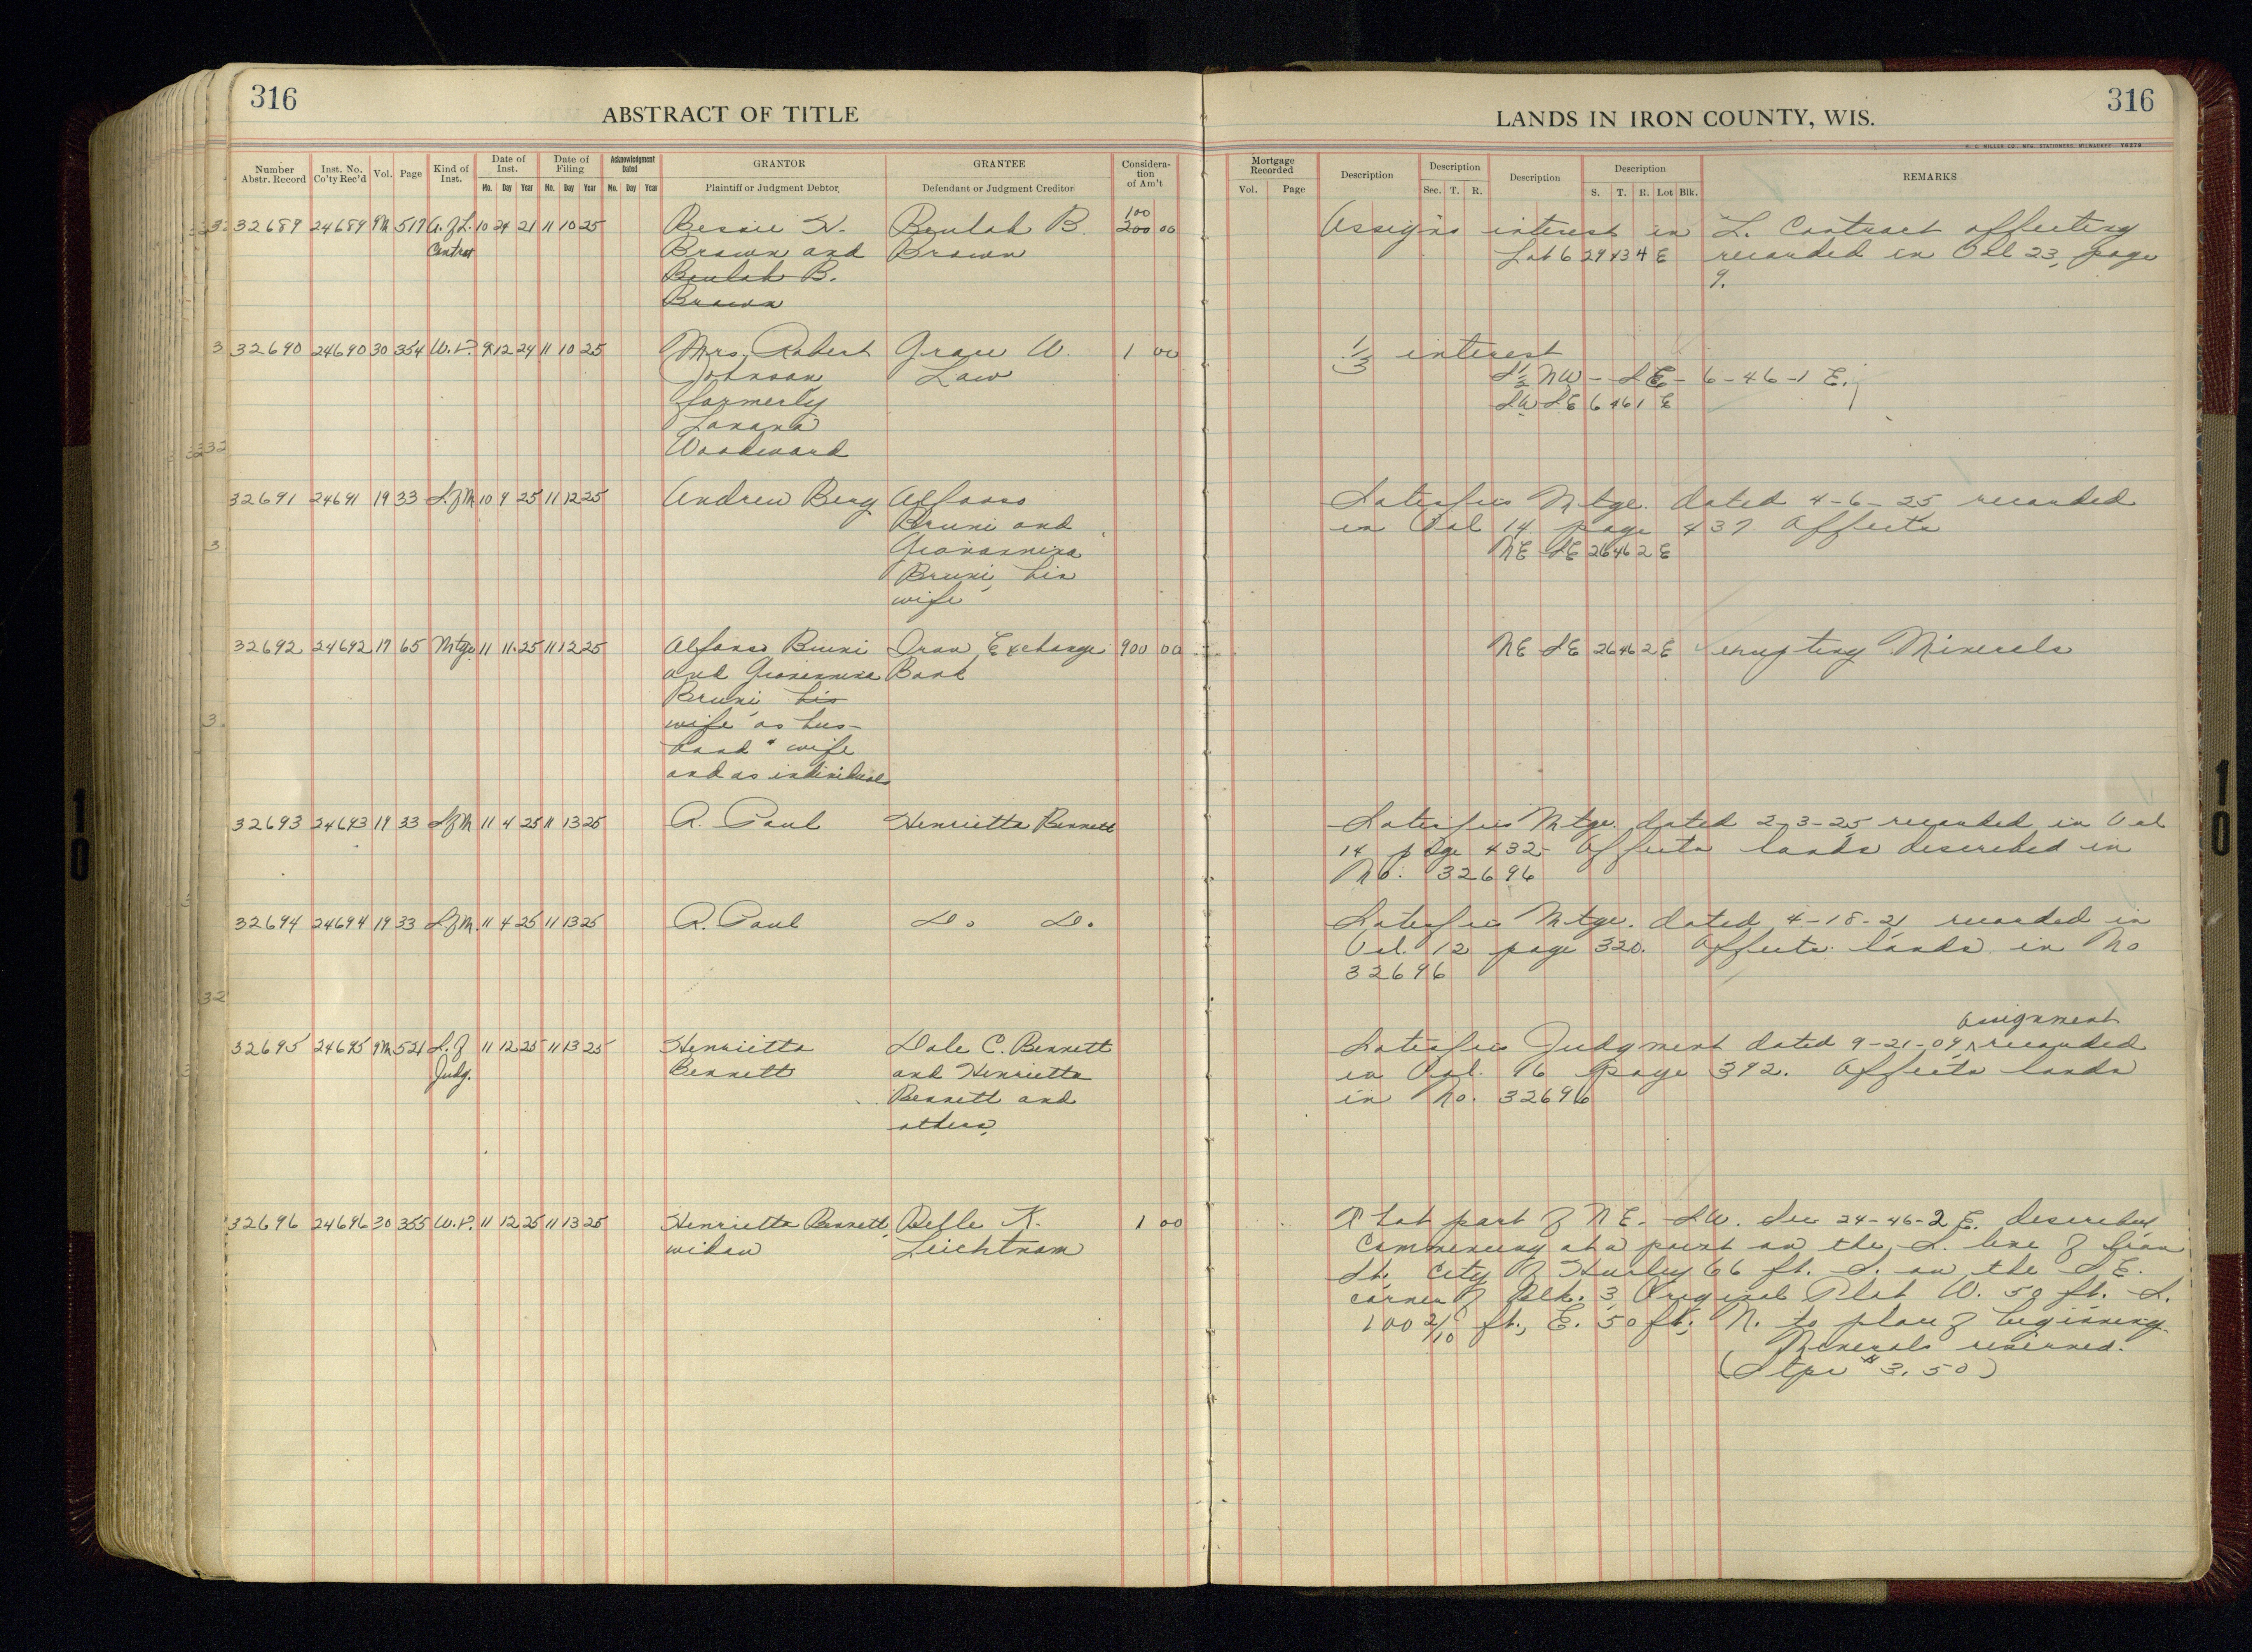 316
ABSTRACT OF TITLE
Number Abstr. Record Inst. No. Co'ty Rec'd Vol. Page Kind of Inst. Date of Inst. Mo. Day Year Date of Filing Mo. Day Year Acknowledgment Dated Mo. Day Year GRANTOR Plaintiff or Judgment Debtor GRANTEE Defendant or Judgment Creditor Considera-tion of Am't
32689 24689 9M 517 A. of L. 10 24 21 11 10 25 Bessie H. Beulah B. 100
Contract Brown and Brown 200 00
Beulah B.
Brown
32690 24690 30 354 W.D. 9 12 24 11 10 25 Mrs. Robert Grace W. 1 00
Johnson Law
formerly
Lavana
Woodward
32691 24691 19 33 S. of M. 10 9 25 11 12 25 Andrew Berg Alfonso
Bruni and
Giovannina
Bruni, his
wife
32692 24692 17 65 Mtge 11 11 25 11 12 25 Alfonso Bruni Iron Exchange 900 00
and Giovannina Bank
Bruni, his
wife as hus-
band & wife
and as individuals
32693 24693 19 33 S of M 11 4 25 11 13 25 A. Paul Henrietta Bennett
32694 24694 19 33 S of M. 11 4 25 11 13 25 A. Paul Do Do.
32695 24695 9M 521 S. of 11 12 25 11 13 25 Henrietta Dale C. Bennett
Judg. Bennett and Henrietta
Bennett and
others,
32696 24696 30 355 W.D. 11 12 25 11 13 25 Henrietta Bennett, Belle K. 1 00
widow Leichtnam
316
LANDS IN IRON COUNTY, WIS.
H. C. MILLER CO., MFG. STATIONERS, MILWAUKEE
Mortgage Recorded Vol. Page Description Description Sec. T. R. Description Description S. T. R. Lot Blk. REMARKS
Assigns interest in L. Contract affecting
Lot 6 29 43 4 E recorded in Vol 23, page
9.
1/3 interest
S 1/2 NW - SE - 6-46-1 E.;
SW SE 6 46 1 E
Satisfies Mtge. dated 4-6-25 recorded
in Vol 14 page 437 Affects
NE SE 26 46 2 E
NE SE 26 46 2 E excepting Minerals
Satisfies Mtge. dated 2-3-25 recorded in Vol
14 page 432- Affects lands described in
No. 32696
Satisfies Mtge. dated 4-18-21 recorded in
Vol. 12 page 320. Affects lands in No
32696
assignment
Satisfies Judgment dated 9-21-09, ^ recorded
in Vol. 96 page 392. Affects lands
in No. 32696
That part of NE. SW. Sec 24-46-2 E. described
Commencing at a point on the S. line of Iron
St. City of Hurley 66 ft. S. on the S.E.
corner of Blk. 3 Original Plat W. 50 ft. S.
100 2/10 ft., E. 50 ft; N. to place of beginning.
Minerals reserved.
(Stps $3.50)